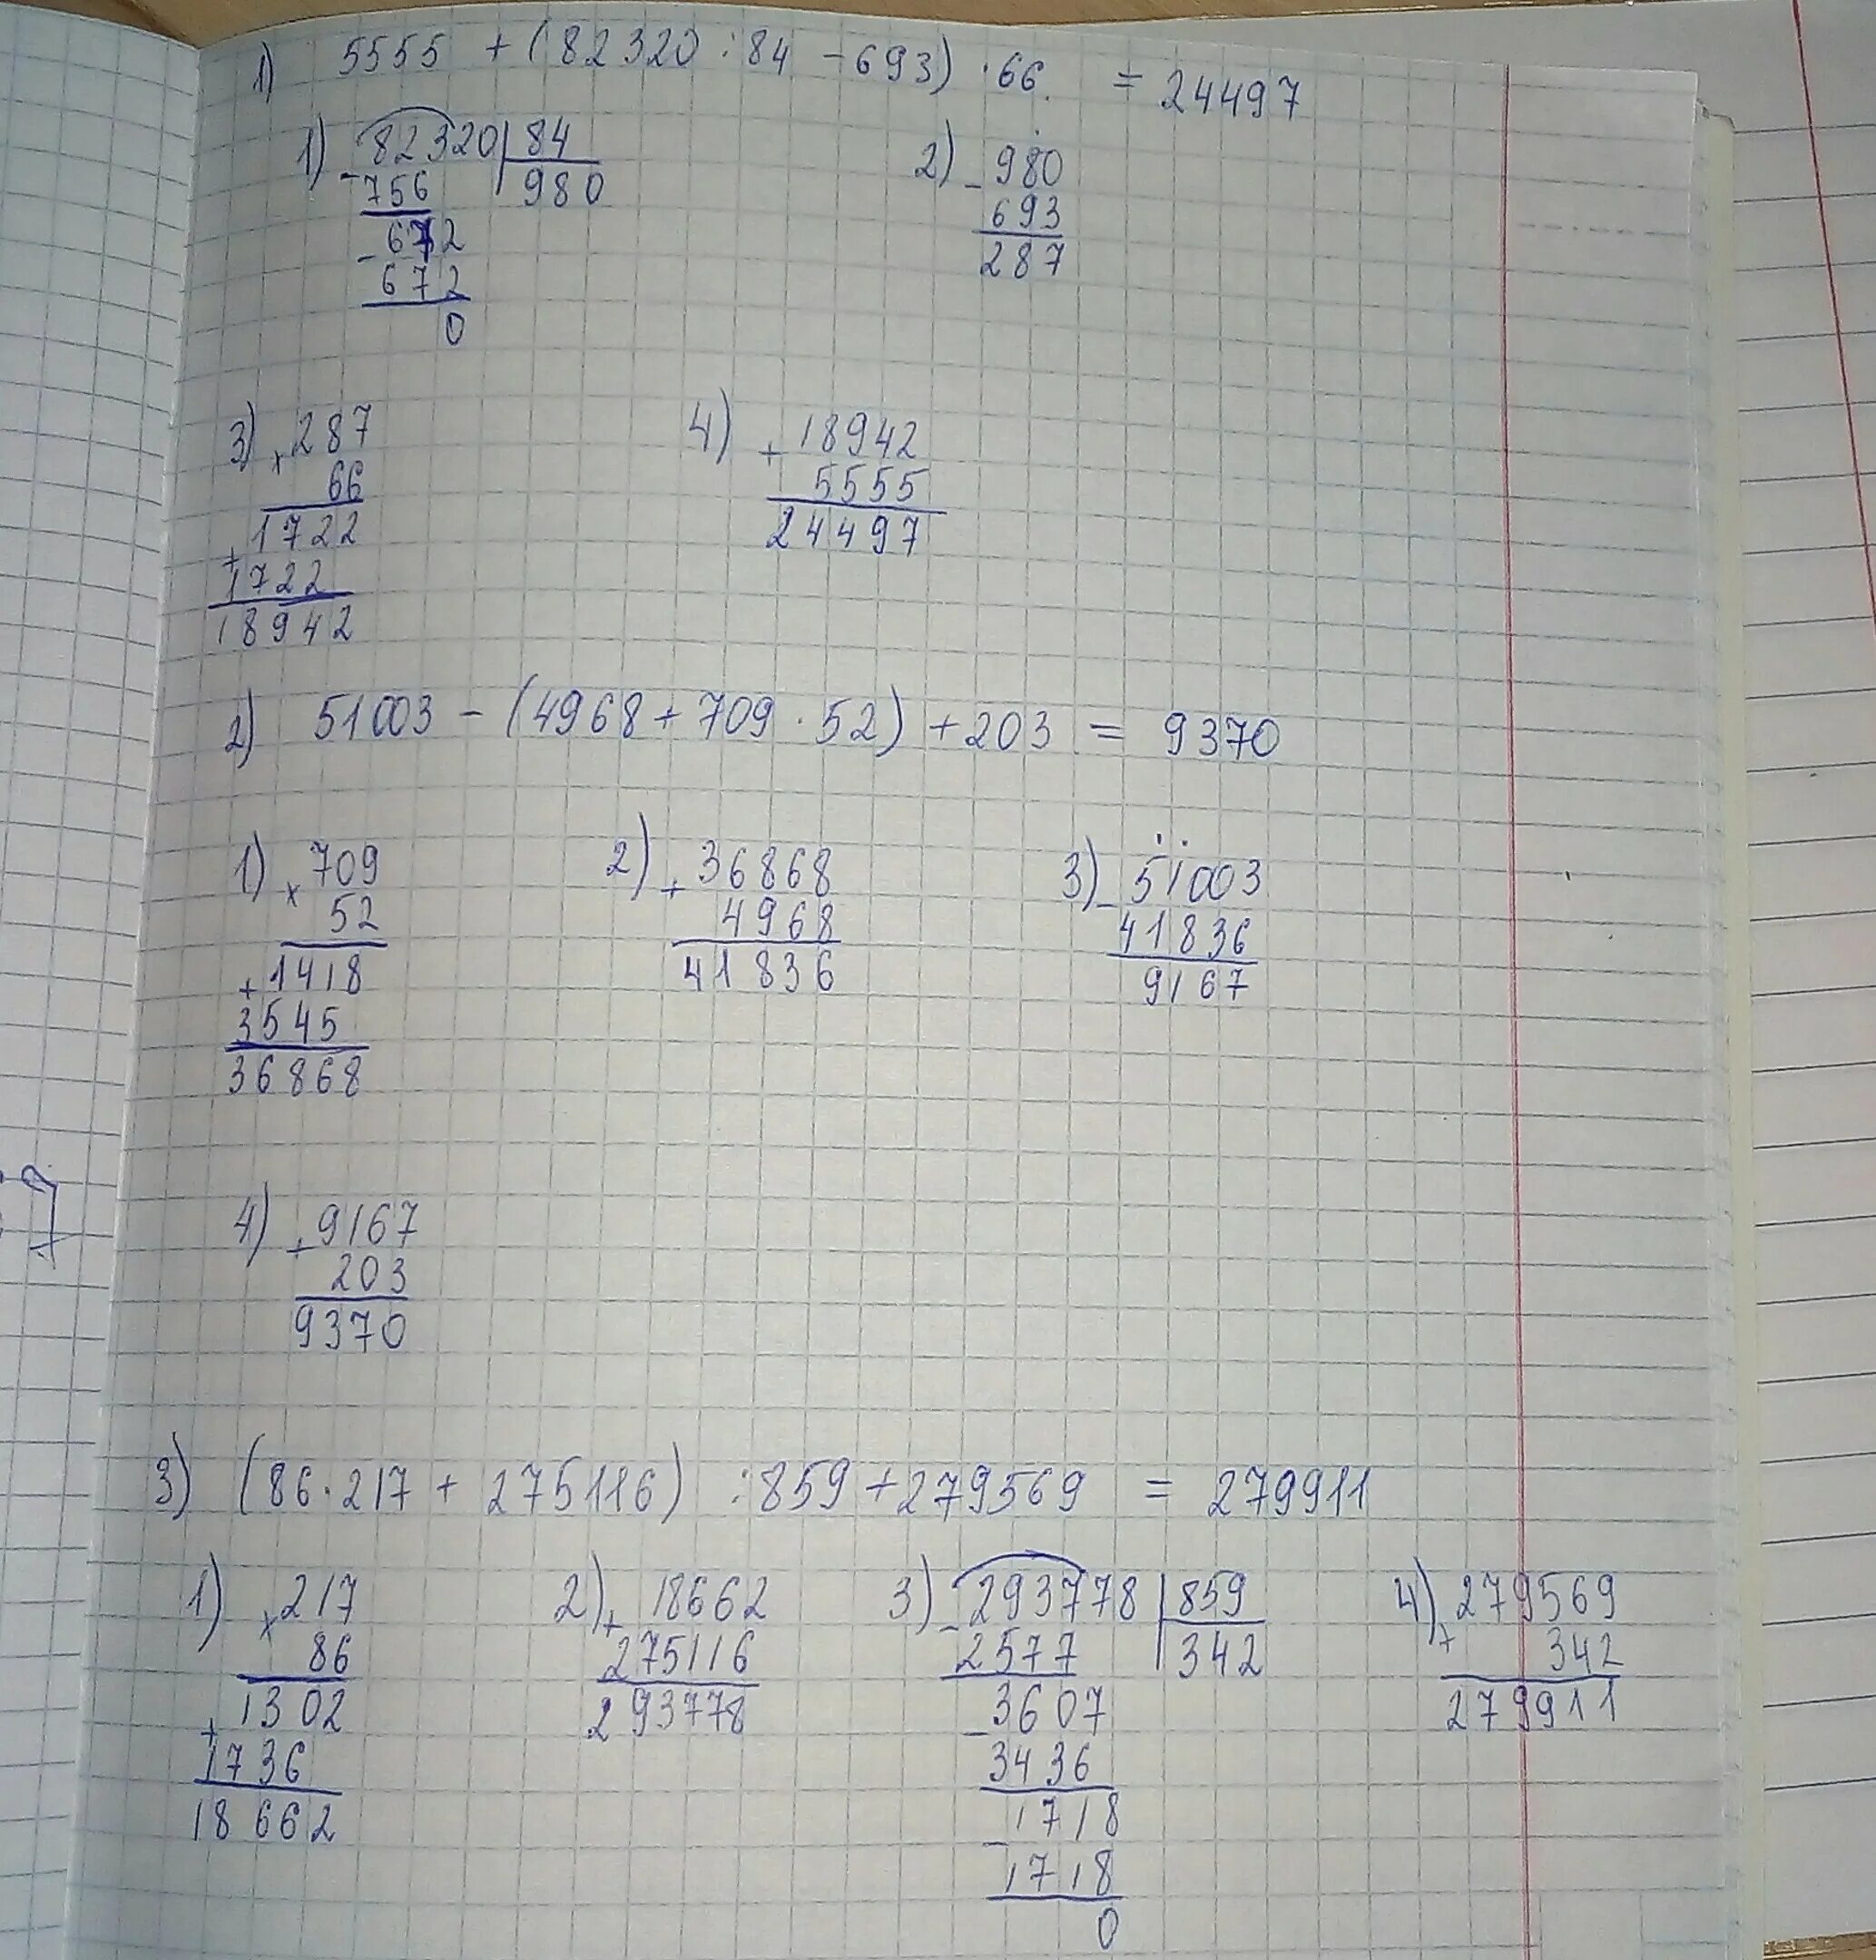 1) 5555 + (82320 : 84 - 693) · 66 = 24497
1) - 82320 | 84
756 | 980
- 672
672
0
2) - 980
693
287
3) x 287
66
+ 1722
1722
18942
4) + 18942
5555
24497
2) 51003 - (4968 + 709 · 52) + 203 = 9370
1) x 709
52
+ 1418
3545
36868
2) + 36868
4968
41836
3) - 51003
41836
9167
4) + 9167
203
9370
3) (86 · 217 + 275116) : 859 + 279569 = 279911
1) x 217
86
+ 1302
1736
18662
2) + 18662
275116
293778
3) - 293778 | 859
2577 | 342
- 3607
3436
- 1718
1718
0
4) + 279569
342
279911